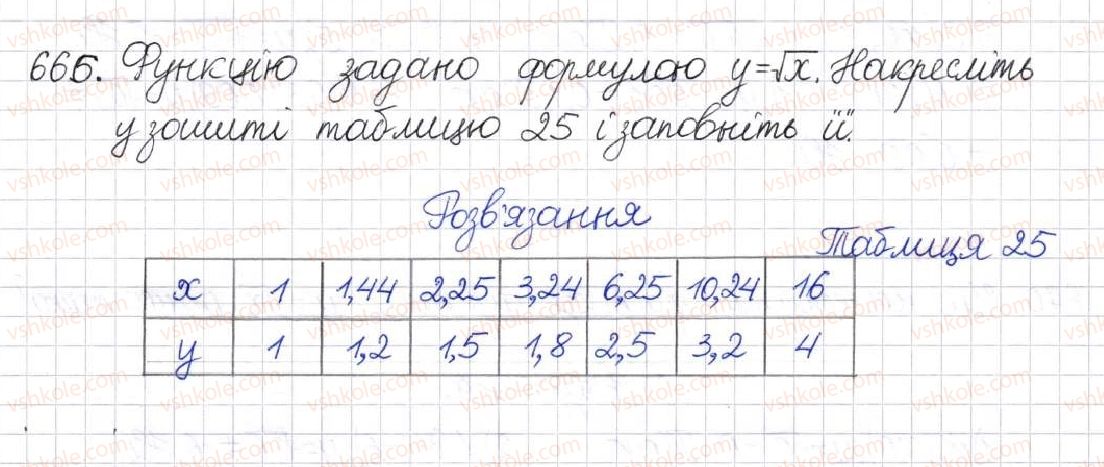 666. Функцію задано формулою y=√x. Накресліть
у зошиті таблицю 25 і заповніть її.
Розв'язання
Таблиця 25
x 1 1,44 2,25 3,24 6,25 10,24 16
y 1 1,2 1,5 1,8 2,5 3,2 4
vshkole.com